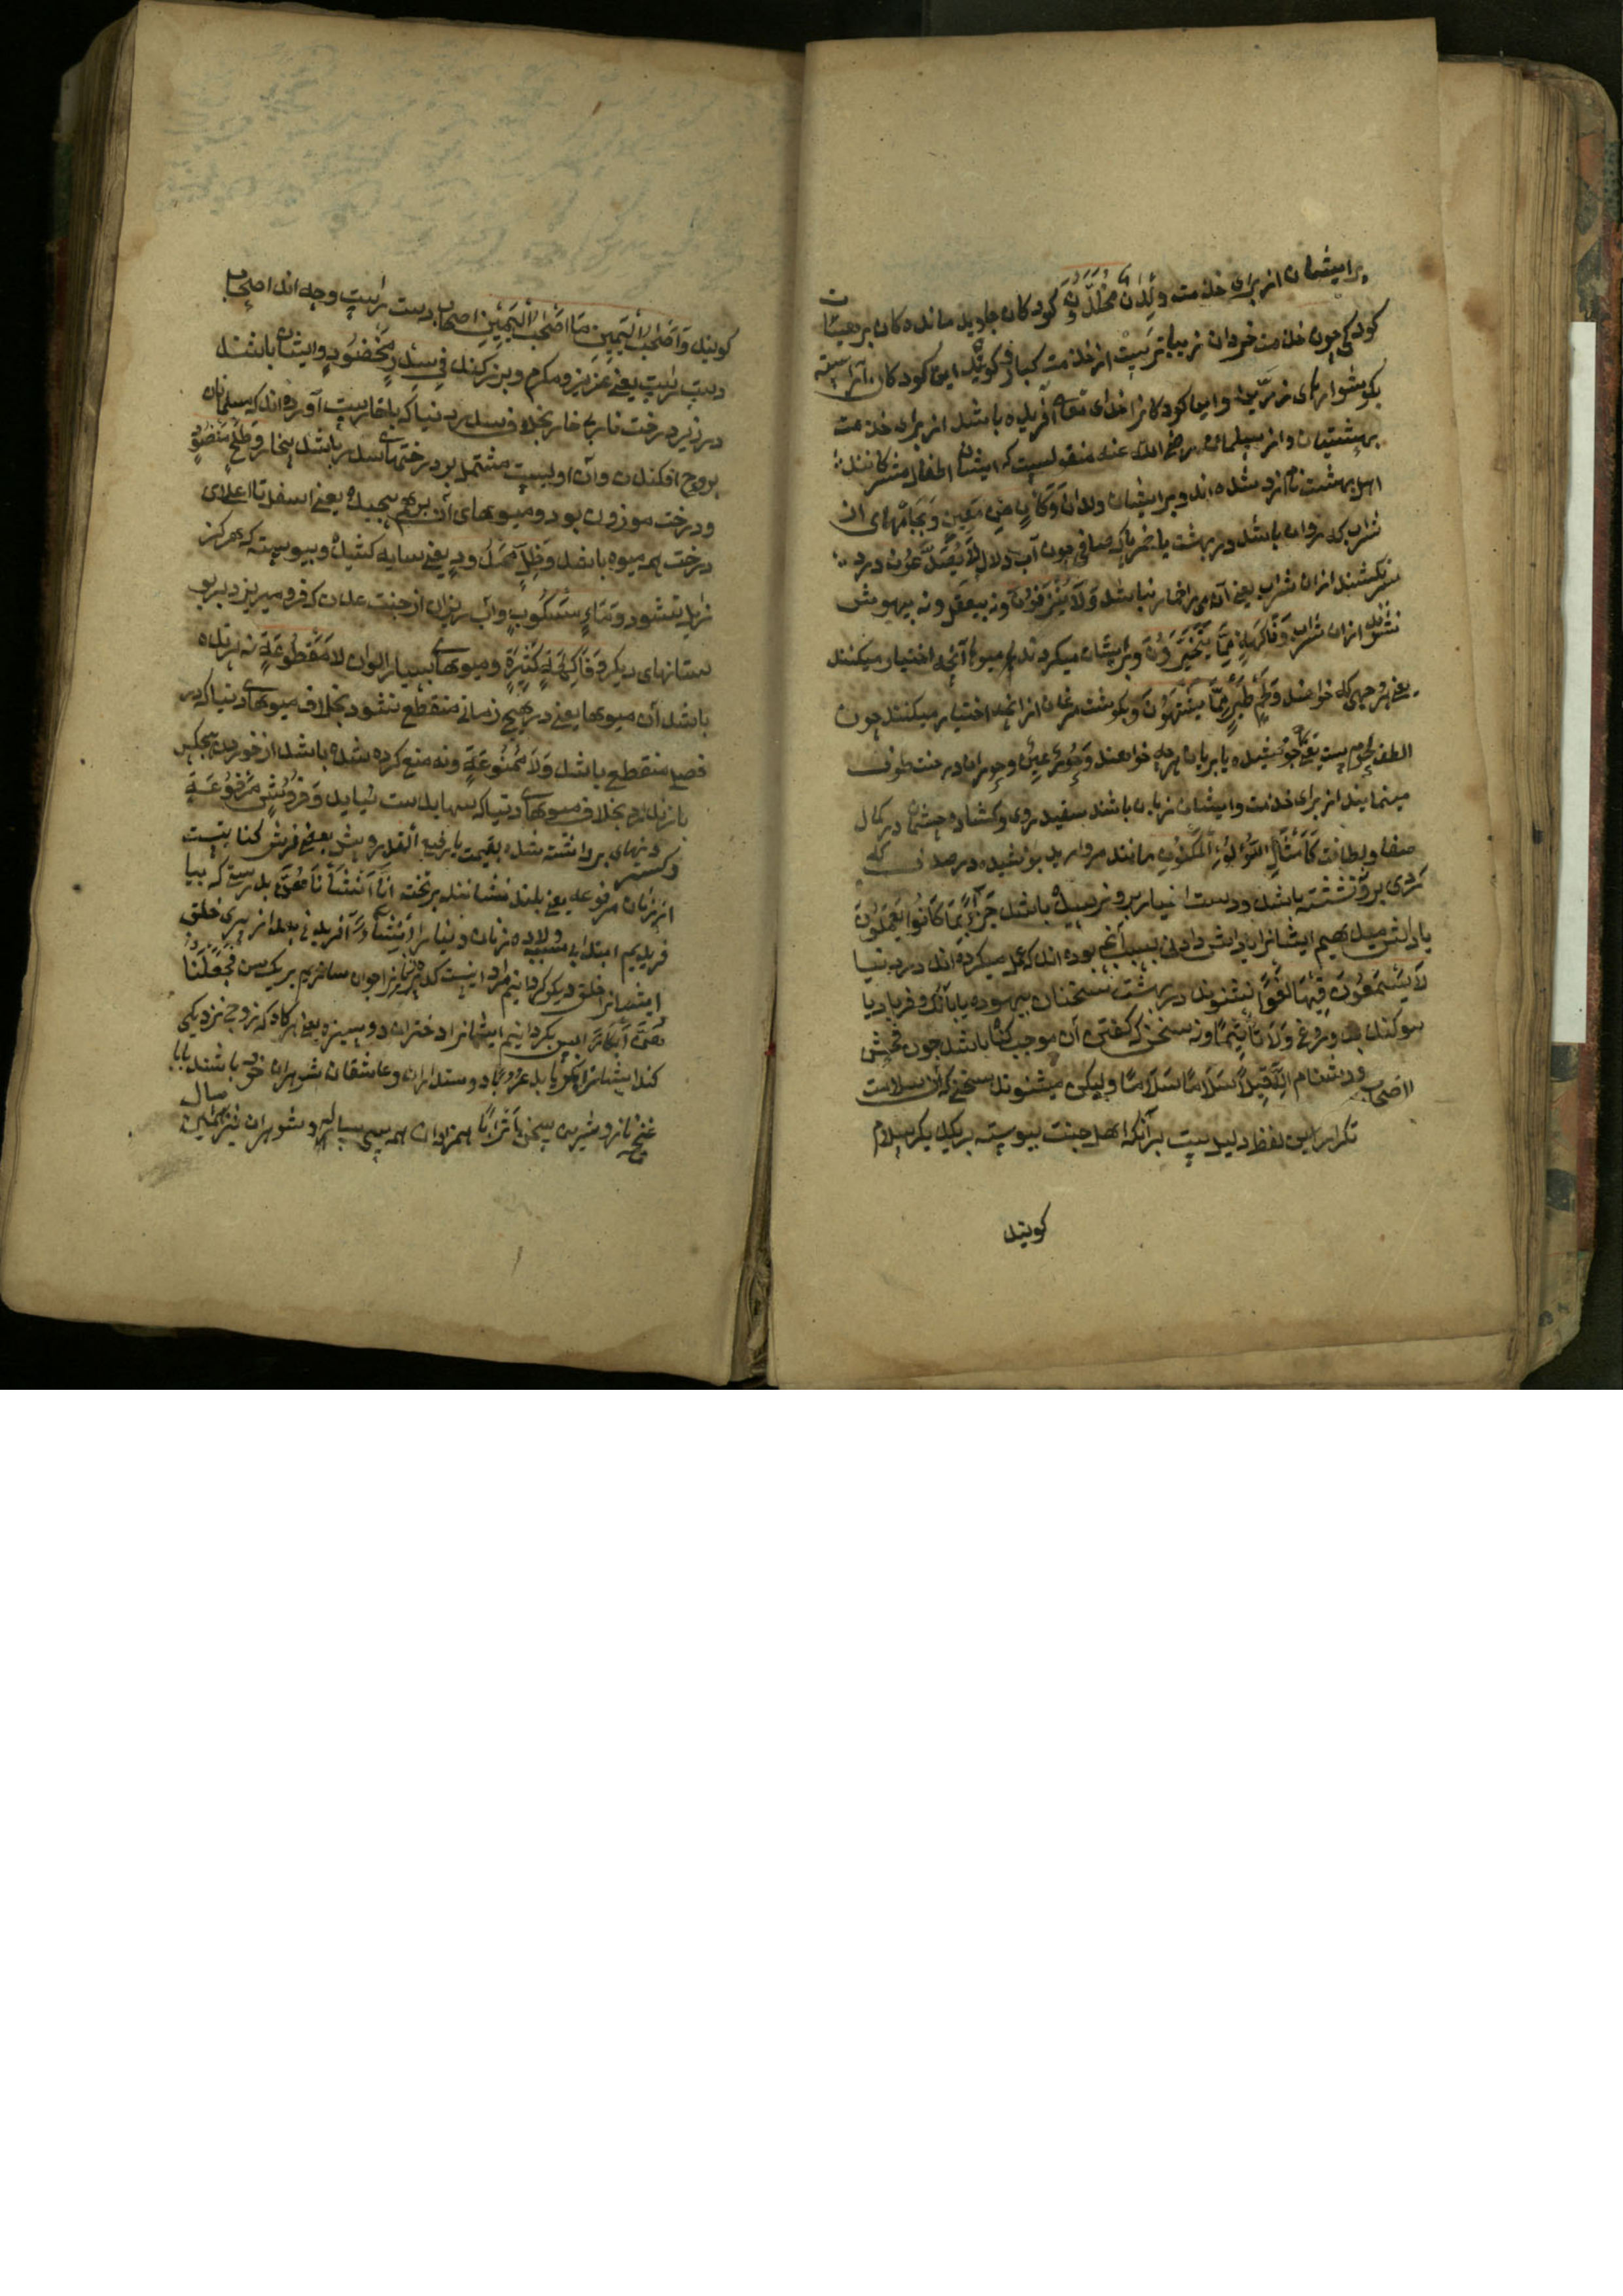 برایشان از برای خدمت وِلْدَانٌ مُخَلَّدُونَ کودکان جاوید مانده کان بر هیئات
کودکی چون خدمت خردان زیباترست از خدمت کبار و کویند این کودکان آراسته
بکوشوارهای مزین و این کودکانرا خدای تعالی آفریده باشد از برای خدمت
بهشتیان و از سلمان رضی الله عنه منقولست که ایشان اطفال مشرکانند
اهل بهشت نام زد شده اند و برایشان ولدان وَكَأْسٍ مِنْ مَعِينٍ و بجامهای از
شراب که روان باشد در بهشت یا خمر پاک صافی چون آب زلال لَا يُصَدَّعُونَ درد
سر نکشند ازان شراب یعنی آن می را خمار نباشد وَلَا يُنْزِفُونَ و نه بیعقل و نه بیهوش
شوند ازان شراب وَفَاكِهَةٍ مِمَّا يَتَخَيَّرُونَ و برایشان میکردند میوها آنچه اختیار میکنند
یعنی هر چه که خواهند وَلَحْمِ طَيْرٍ مِمَّا يَشْتَهُونَ و بکوشت مرغان از آنچه اختیار میکنند چون
الطف لحوم ست یعنی جوشیده یا بریان هر چه خواهند وَحُورٌ عِينٌ و حوران در جنت طوف
مینمایند از برای خدمت و ایشان زنان باشند سفید روی و کشاده چشمان در کمال
صفا و لطافت كَأَمْثَالِ اللُّؤْلُؤِ الْمَكْنُونِ مانند مروارید پوشیده در صدف که
کردی برو ننشسته باشد و دست اغیار برو نرسیده باشد جَزَاءً بِمَا كَانُوا يَعْمَلُونَ
پاداش میدهیم ایشانرا پاداش دادنی بسبب آنچه بوده اند که عمل میکرده اند در دنیا
لَا يَسْمَعُونَ فِيهَا لَغْوًا نشنوند در بهشت سخنان بیهوده یا بانک و فریاد یا
سوکند بدروغ وَلَا تَأْثِيمًا و نه سخنی که کفتن آن موجب کناه باشد چون فحش
و دشنام إِلَّا قِيلًا سَلَامًا سَلَامًا ولیکن میشنوند سخنی که آن سلامت
تکرار این لفظ دلیل ست برآنکه اهل جنت پیوسته بر یکدیکر سلام
کویند
کویند وَأَصْحَابُ الْيَمِينِ مَا أَصْحَابُ الْيَمِينِ اصحاب دست راست و چه اند اصحاب
دست راست یعنی عزیز و مکرم و بزرکند فِي سِدْرٍ مَخْضُودٍ و ایشان باشند
در زیر درخت نار بی خار بخلاف سدر دنیا که با خارست آورده اند که مسلمانان
بروج افکندن و آن اولیست مشتمل بود درختهای سدر باشد بیخار وَطَلْحٍ مَنْضُودٍ
و درخت موز و ن بود و میوهای آن برهم پیچیده یعنی از اسفل تا اعلای
درخت همه میوه باشد وَظِلٍّ مَمْدُودٍ یعنی سایه کشیده و پیوسته که هرکز
زایل نشود وَمَاءٍ مَسْكُوبٍ و آب ریزان از جنت عدن که فرو میریزد بر
بستانهای دیکر وَفَاكِهَةٍ كَثِيرَةٍ و میوهای بسیار الوان لَا مَقْطُوعَةٍ نه بریده
باشد آن میوها یعنی در هیچ زمانی منقطع نشود بخلاف میوهای دنیا که در
فصلی منقطع باشد وَلَا مَمْنُوعَةٍ و نه منع کرده شده باشد از خوردن هیچکس
باز ندارد بخلاف میوهای دنیا که بیبها بدست نیاید وَفُرُشٍ مَرْفُوعَةٍ
و کسترد نیهای برداشته شده بقیمت یا رفیع القدر و پیش بعضی فرش کنایتست
از زنان مرفوعه یعنی بلند نشانند بر تخته إِنَّا أَنْشَأْنَاهُنَّ بدرستی که بیا
فریدیم ابتدا بی ولاده زنان دنیا را إِنْشَاءً آفریدنی بعد از پیری خلق
ایشانرا خلق دیکر کردانیم مراد اینست که پیرانرا جوان سازیم بر یک سن فَجَعَلْنَاهُنَّ
أَبْكَارًا پس بکردانیم ایشانرا دختران دوشیزه یعنی هرکاه که زوج نزدیکی
کند ایشانرا بکر یابد عُرُبًا دوستداران و عاشقان شوهران خود باشند یا با
غنج و ناز و شیرین سخن أَتْرَابًا همزادان همه سی ساله و شوهران نیز همین سال